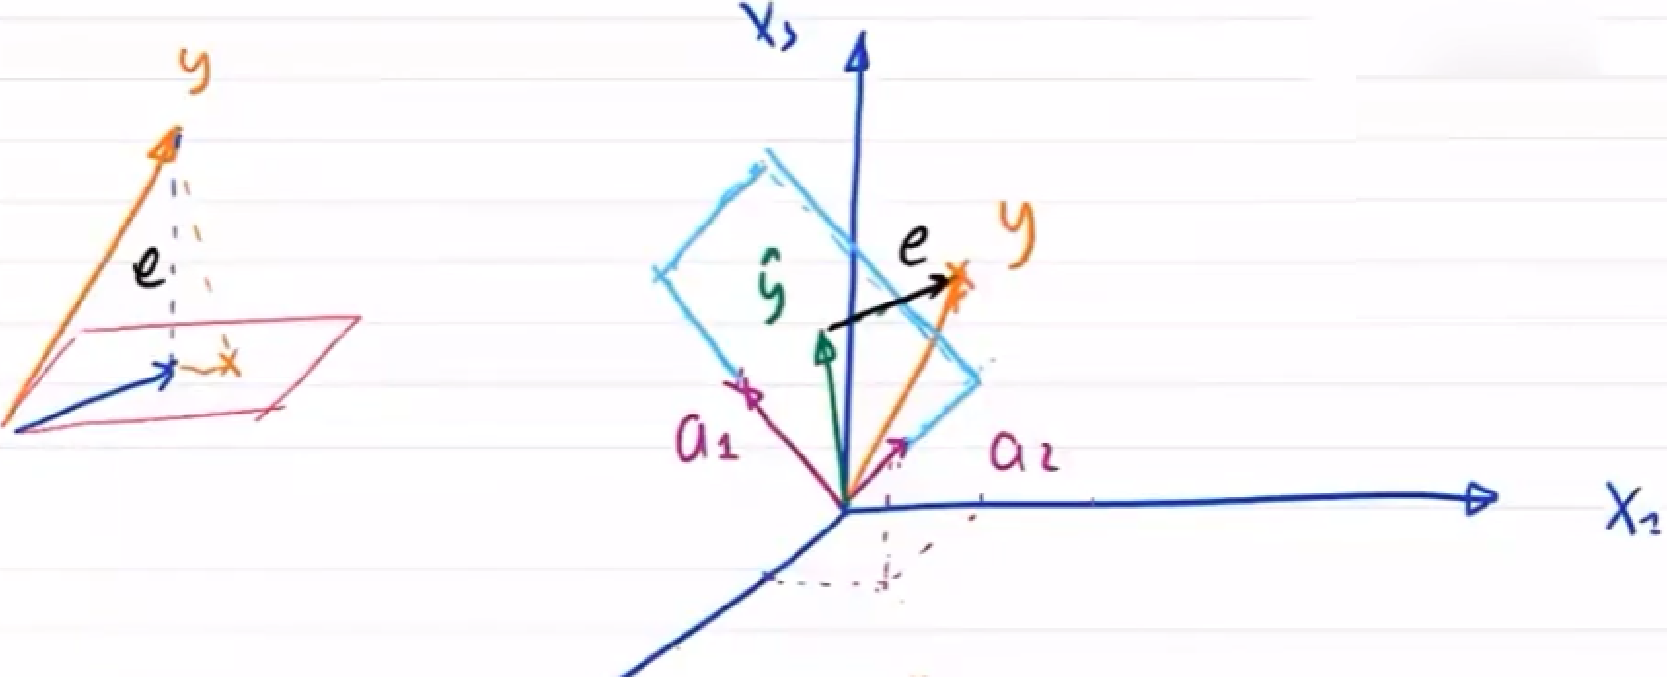 y
e
x₃
ŷ
e
y
a₁
a₂
x₂